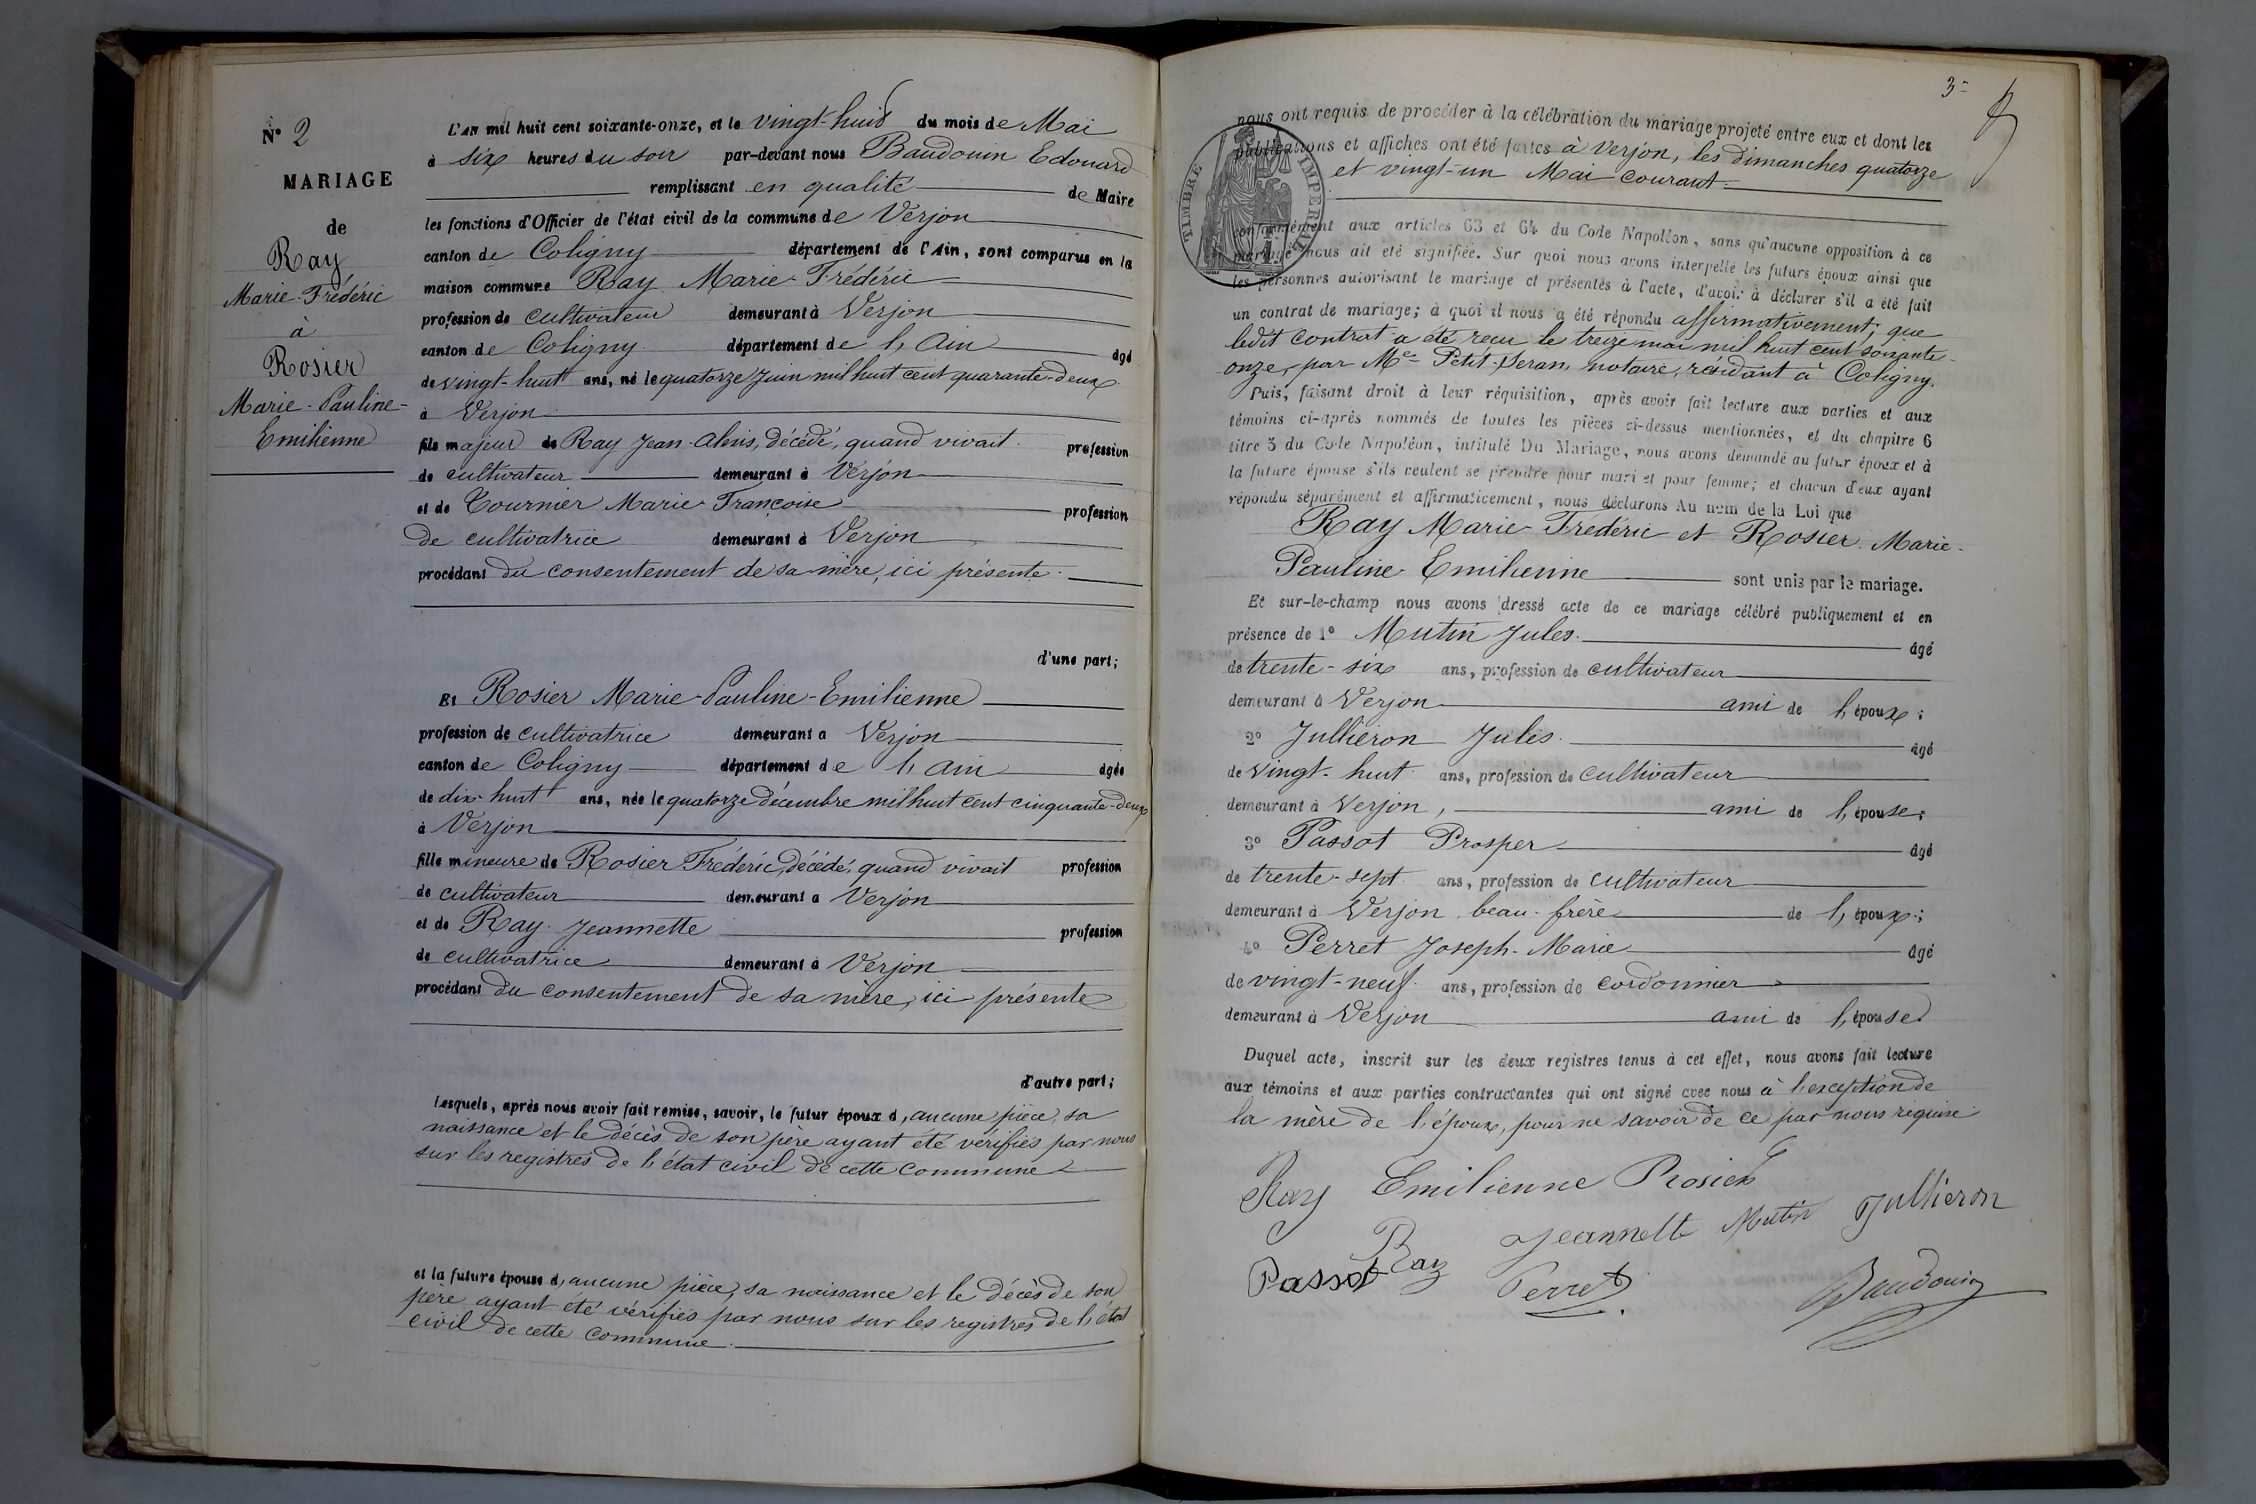 N° 2
MARIAGE
de
Ray
Marie-Frédéric
à
Rosier
Marie-Pauline-
Emilienne
L'AN mil huit cent soixante-onze, et le vingt-huit du mois de Mai
à six heures du soir par-devant nous Baudouin Edouard
remplissant en qualité de Maire
les fonctions d'Officier de l'état civil de la commune de Verjon
canton de Coligny département de l'Ain, sont comparus en la
maison commune Ray Marie-Frédéric
profession de cultivateur demeurant à Verjon
canton de Coligny département de l'Ain âgé
de vingt-huit ans, né le quatorze Juin mil huit cent quarante-deux
à Verjon
fils majeur de Ray Jean-Alexis, décédé, quand vivait profession
de cultivateur demeurant à Verjon
et de Tournier Marie-Françoise profession
de cultivatrice demeurant à Verjon
procédant du consentement de sa mère, ici présente.
d'une part;
Et Rosier Marie-Pauline-Emilienne
profession de cultivatrice demeurant à Verjon
canton de Coligny département de l'Ain âgée
de dix-huit ans, née le quatorze décembre mil huit cent cinquante-deux
à Verjon
fille mineure de Rosier Frédéric, décédé, quand vivait profession
de cultivateur demeurant à Verjon
et de Ray Jeannette profession
de cultivatrice demeurant à Verjon
procédant du consentement de sa mère, ici présente
d'autre part;
Lesquels, après nous avoir fait remise, savoir, le futur époux d'aucune pièce, sa
naissance et le décès de son père ayant été vérifiés par nous
sur les registres de l'état civil de cette commune
et la future épouse d'aucune pièce, sa naissance et le décès de son
père ayant été vérifiés par nous sur les registres de l'état
civil de cette commune.
3
nous ont requis de procéder à la célébration du mariage projeté entre eux et dont les
publications et affiches ont été faites à Verjon, les dimanches quatorze
et vingt-un Mai courant.
TIMBRE IMPERIAL
conformément aux articles 63 et 64 du Code Napoléon, sans qu'aucune opposition à ce
mariage nous ait été signifiée. Sur quoi nous avons interpellé les futurs époux ainsi que
les personnes autorisant le mariage et présentés à l'acte, d'avoir à déclarer s'il a été fait
un contrat de mariage; à quoi il nous a été répondu affirmativement, que
ledit contrat a été reçu le treize mai mil huit cent soixante-
onze, par Me Petit-Jeran, notaire, résidant à Coligny.
Puis, faisant droit à leur réquisition, après avoir fait lecture aux parties et aux
témoins ci-après nommés de toutes les pièces ci-dessus mentionnées, et du chapitre 6
titre 5 du Code Napoléon, intitulé Du Mariage, nous avons demandé au futur époux et à
la future épouse s'ils veulent se prendre pour mari et pour femme; et chacun d'eux ayant
répondu séparément et affirmativement, nous déclarons Au nom de la Loi que
Ray Marie-Frédéric et Rosier Marie-
Pauline-Emilienne sont unis par le mariage.
Et sur-le-champ nous avons dressé acte de ce mariage célébré publiquement et en
présence de 1° Mutin Jules. âgé
de trente-six ans, profession de cultivateur
demeurant à Verjon ami de l'époux;
2° Jullieron Jules. âgé
de vingt-huit ans, profession de cultivateur
demeurant à Verjon, ami de l'épouse;
3° Passot Prosper âgé
de trente-sept ans, profession de cultivateur
demeurant à Verjon beau-frère de l'époux;
4° Perret Joseph-Marie âgé
de vingt-neuf ans, profession de cordonnier
demeurant à Verjon ami de l'épouse.
Duquel acte, inscrit sur les deux registres tenus à cet effet, nous avons fait lecture
aux témoins et aux parties contractantes qui ont signé avec nous à l'exception de
la mère de l'époux, pour ne savoir de ce par nous requise
Ray Emilienne Rosier
Ray Jeannette Mutin Jullieron
Passot Perret Baudouin